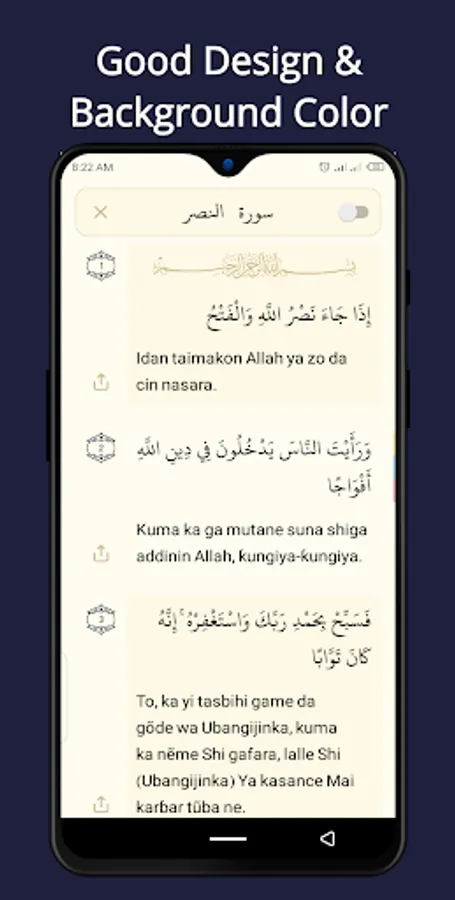 Good Design &
Background Color
8:22 AM
سورة النصر
1
بسم الله الرحمن الرحيم
إِذَا جَاءَ نَصْرُ اللَّهِ وَالْفَتْحُ
Idan taimakon Allah ya zo da
cin nasara.
2
وَرَأَيْتَ النَّاسَ يَدْخُلُونَ فِي دِينِ اللَّهِ
أَفْوَاجًا
Kuma ka ga mutane suna shiga
addinin Allah, ƙungiya-ƙungiya.
3
فَسَبِّحْ بِحَمْدِ رَبِّكَ وَاسْتَغْفِرْهُ ۚ إِنَّهُ
كَانَ تَوَّابًا
To, ka yi tasbihi game da
gõde wa Ubangijinka, kuma
ka nẽme Shi gafara, lalle Shi
(Ubangijinka) Ya kasance Mai
karɓar tũba ne.